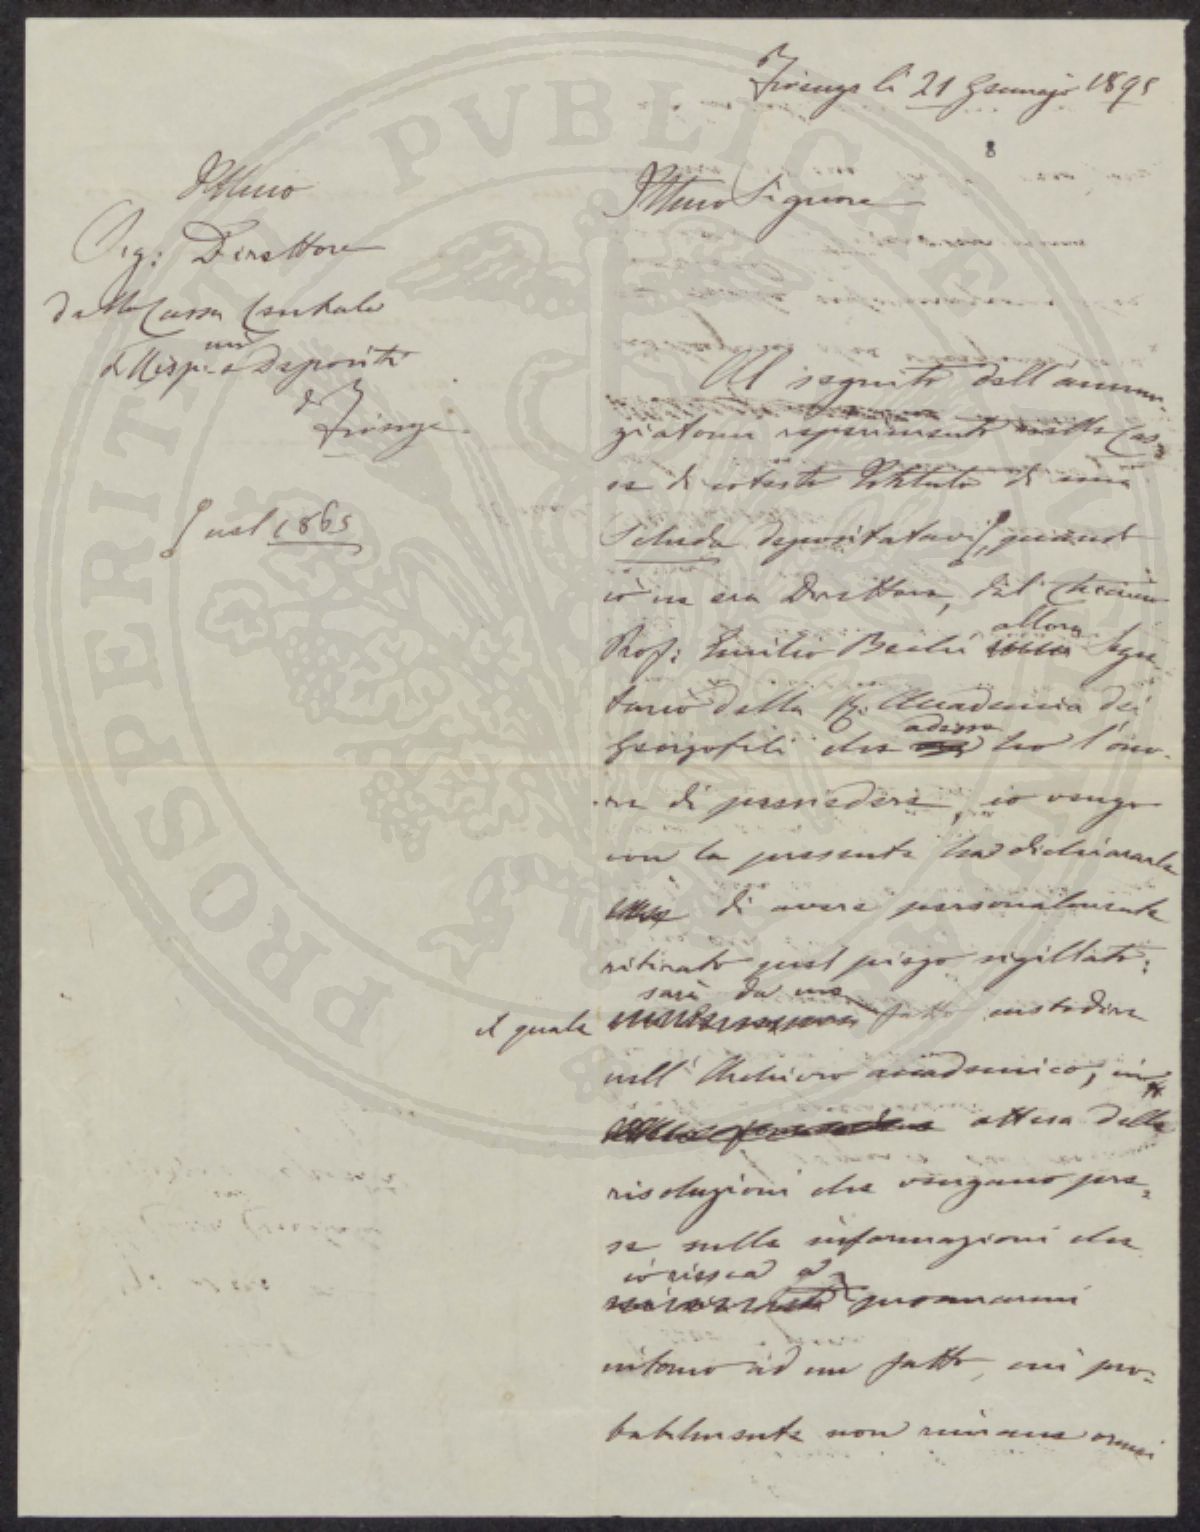 Firenze li 21 Gennajo 1895
8
Illmo
Sig: Direttore
della Cassa Centrale
di Risp.mi e Depositi
di Firenze
∫ nel 1865
Illmo Signore
Al seguito dell'annun-
ziatomi reperimento nelle Cas-
se di cotesto Istituto di una
Scheda depositatavi ∫, quand
io ne era Direttore, dal
Prof: Emilio Bechi allora Segre
tario della R. Accademia dei
Georgofili che adesso ho l'ono-
re di presiedere, io vengo
con la presente a dichiararle
di avere personalmente
ritirato quel piego sigillato;
il quale sarà da me fatto custodire
nell'Archivio accademico, in
attesa delle
risoluzioni che vengano pre-
se sulle informazioni che
io riesca a procurarmi
intorno ad un fatto, cui pro-
babilmente non rimane ormai
PROSPERITATI PVBLICAE AVGENDAE